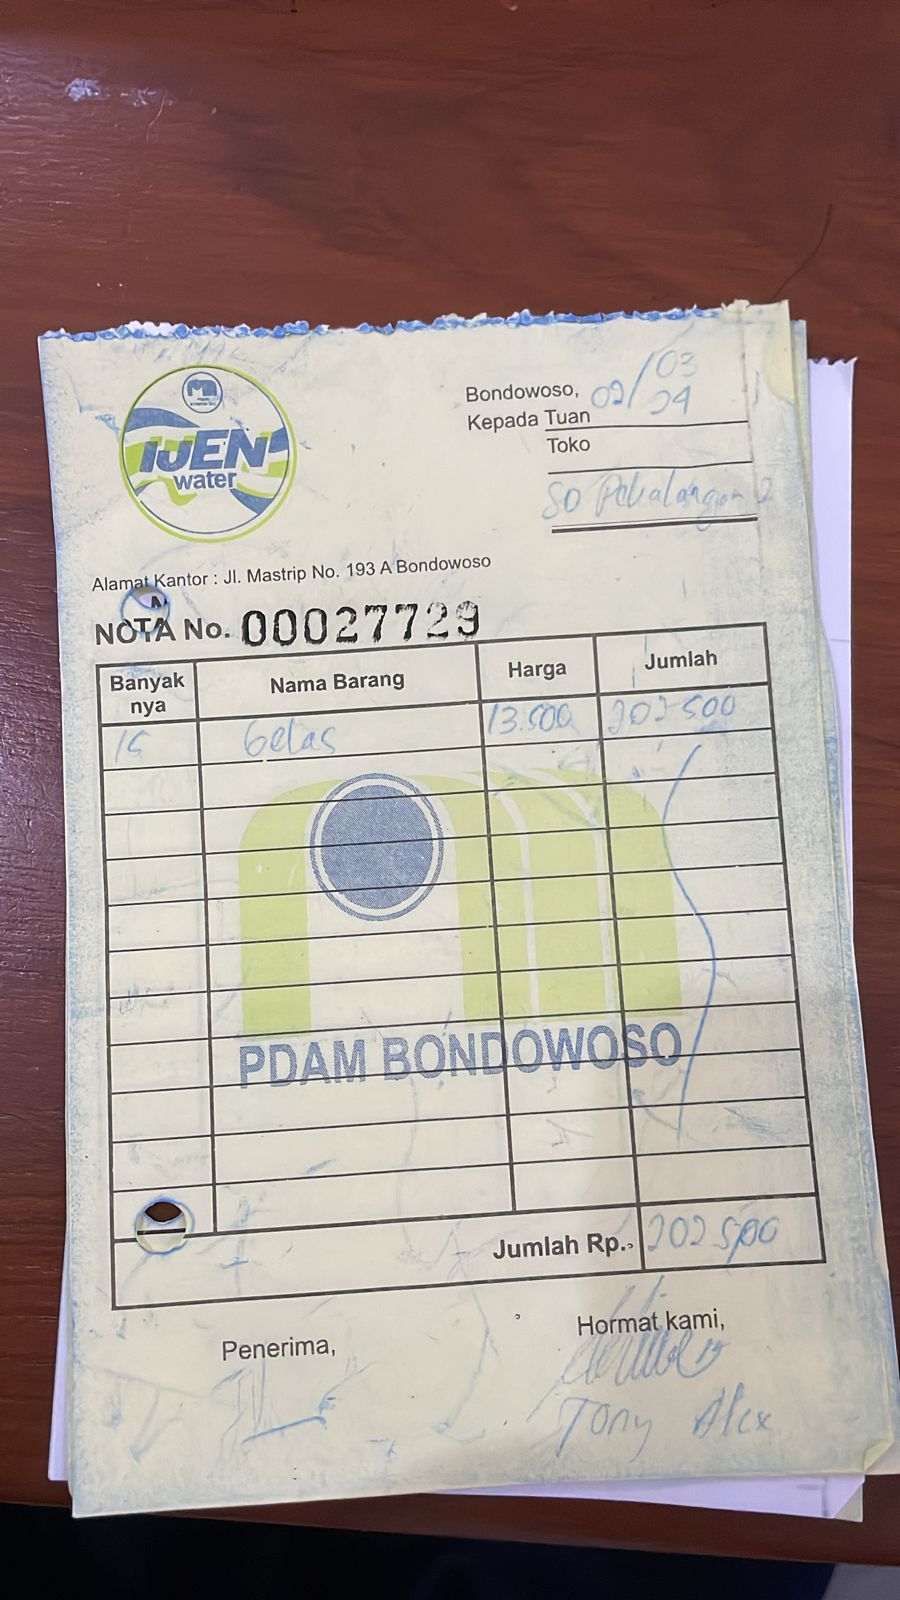 IJEN
water
Bondowoso, 02/03
24
Kepada Tuan
Toko
SD Pekalangan 2
Alamat Kantor : Jl. Mastrip No. 193 A Bondowoso
NOTA No. 00027729
Banyak nya Nama Barang Harga Jumlah
15 Gelas 13.500 202 500
PDAM BONDOWOSO
Jumlah Rp.. 202 500
Penerima, Hormat kami,
Tony Alex